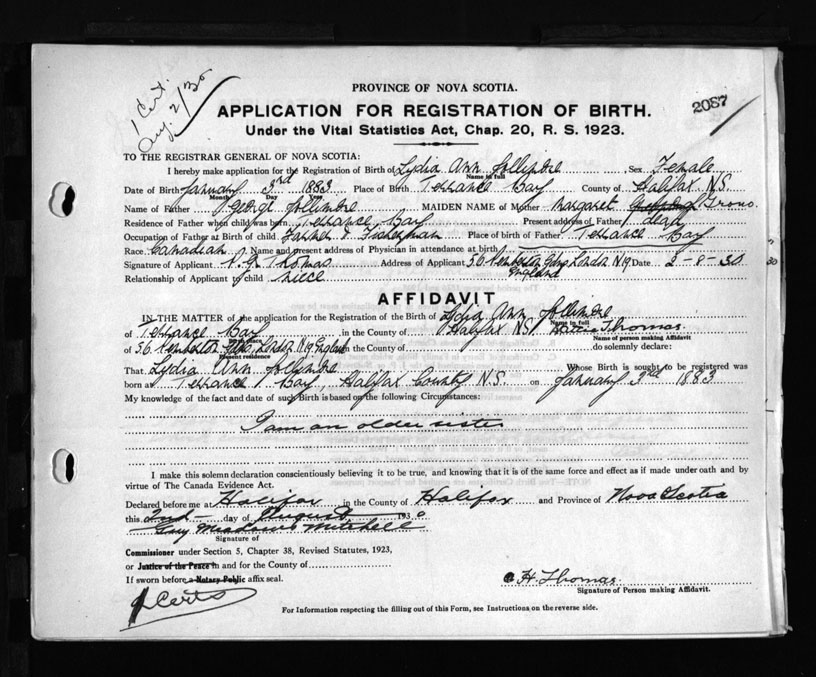 1 Cert.
Aug 2/30
2087
PROVINCE OF NOVA SCOTIA.
APPLICATION FOR REGISTRATION OF BIRTH.
Under the Vital Statistics Act, Chap. 20, R. S. 1923.
TO THE REGISTRAR GENERAL OF NOVA SCOTIA:
I hereby make application for the Registration of Birth of Lydia Ann Jollimore Sex Female
Name in Full
Date of Birth January 3rd 1883 Place of Birth Terrance Bay County of Halifax N.S.
Month Day Year
Name of Father George Jollimore MAIDEN NAME of Mother Margaret
Residence of Father when child was born Terrance Bay Present address of Father dead
Occupation of Father at Birth of child Farmer & Fisherman Place of birth of Father Terrance Bay
Race Canadian Name and present address of Physician in attendance at birth
Signature of Applicant Thomas Address of Applicant 56 Pemberton Gdns London N19 Date 2-8-30
England
Relationship of Applicant to child niece
AFFIDAVIT
IN THE MATTER of the application for the Registration of the Birth of Lydia Ann Jollimore
Name in full
of Terrance Bay in the County of Halifax N.S. Thomas
Name of person making Affidavit
of 56 Pemberton Gdns, London N.19 England in the County of do solemnly declare:
Present residence
That Lydia Ann Jollimore Whose Birth is sought to be registered was
born at Terrance Bay, Halifax County N.S. on January 3rd 1883
My knowledge of the fact and date of such Birth is based on the following Circumstances:
I am an older sister
I make this solemn declaration conscientiously believing it to be true, and knowing that it is of the same force and effect as if made under oath and by
virtue of The Canada Evidence Act.
Declared before me at Halifax in the County of Halifax and Province of Nova Scotia
this 2nd day of August 1930
Guy Mitchell
Signature of
Commissioner under Section 5, Chapter 38, Revised Statutes, 1923,
or Justice of the Peace in and for the County of
If sworn before a Notary Public affix seal.
H. Thomas
Signature of Person making Affidavit.
Certs
For Information respecting the filling out of this Form, see Instructions on the reverse side.